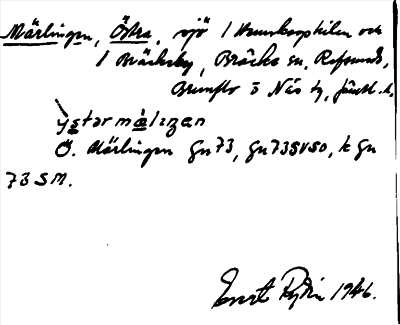 Märlingen, Östra, sjö i Hunkasphilen och
i Bräcksby, Bräcke sn, Refsunds,
Brunflo o Näs tg, Jämtl. l.
ystərmáliŋən
Ö. Märlingen Gn73, Gn73SVSO, k Gn
73SM.
Ernst Rydin 1946.